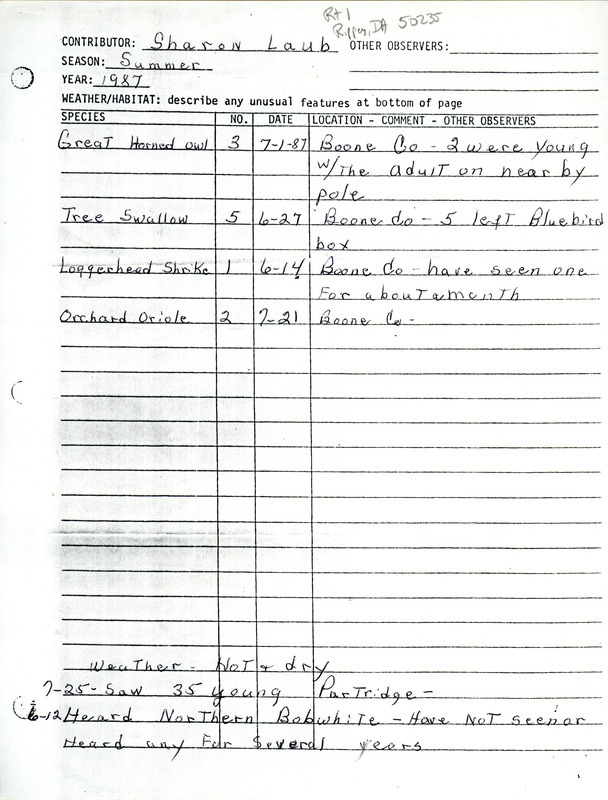 Rt 1
Rippey, IA 50235
CONTRIBUTOR: Sharon Laub OTHER OBSERVERS:
SEASON: Summer
YEAR: 1987
WEATHER/HABITAT: describe any unusual features at bottom of page
SPECIES NO. DATE LOCATION - COMMENT - OTHER OBSERVERS
Great Horned owl 3 7-1-87 Boone Co - 2 were young
w/the adult on near by
pole
Tree Swallow 5 6-27 Boone Co - 5 left Bluebird
box
Loggerhead Shrike 1 6-14 Boone Co - have seen one
For about a month
Orchard Oriole 2 7-21 Boone Co -
Weather - Hot & dry
7-25 - Saw 35 young Partridge -
6-12 Heard Northern Bobwhite - Have Not seen or
Heard any For Several years